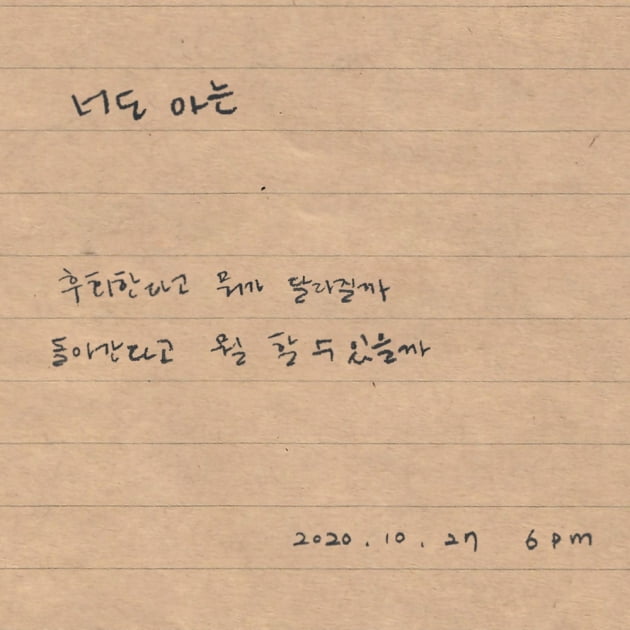 너도 아는
후회한다고 뭐가 달라질까
돌아간다고 뭘 할 수 있을까
2020.10.27 6pm